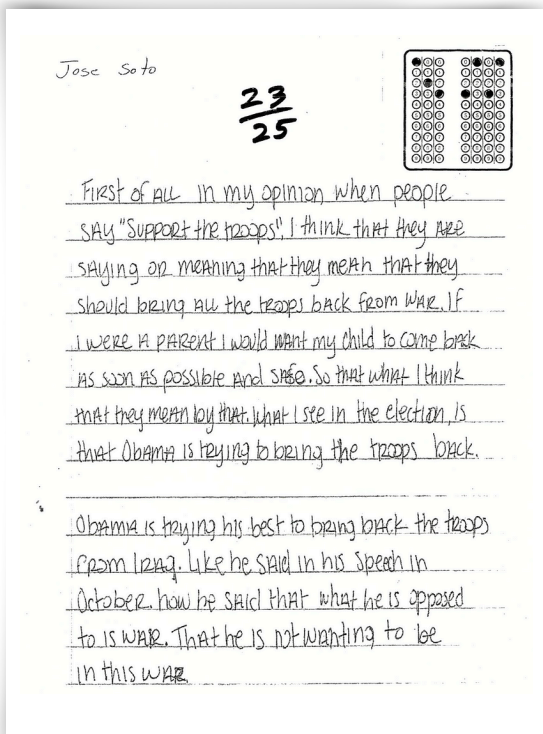 Jose Soto
23
25
First of ALL in my opinion when people
SAY "Support the troops", I think that they ARE
SAying or meaning that they meah that they
should bring ALL the troops back from WAR. If
I WERE A PARENT I would want my child to come back
AS soon AS possible and safe. So that what I think
that they mean by that. What I see in the election, is
that Obama is trying to bring the troops back.
Obama is trying his best to bring back the troops
from Iraq. Like he said in his speech in
October. how he said that what he is opposed
to is WAR. That he is not wanting to be
in this WAR.